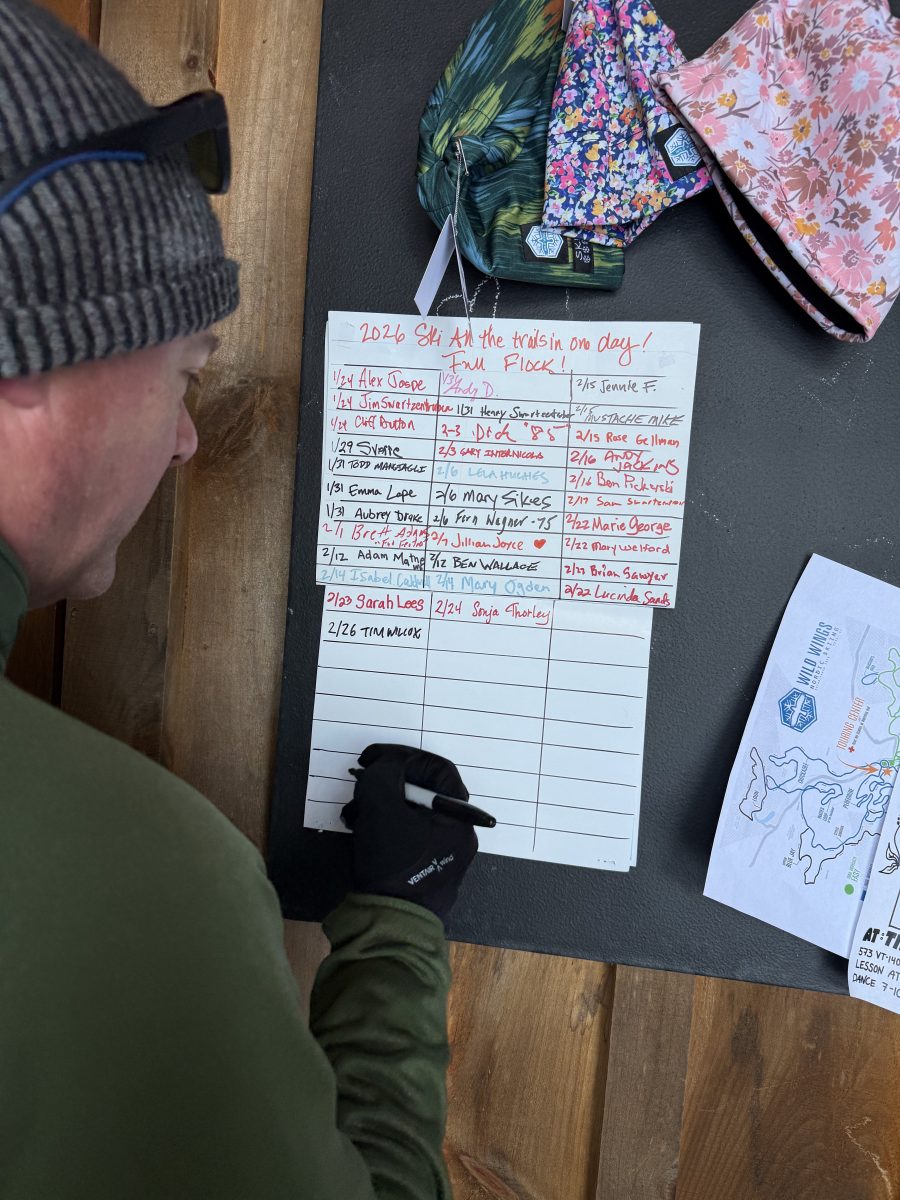 2026 Ski All the trails in one day!
Full Flock!
1/24 Alex Jospe
1/24 Jim Swartzentruber
1/24 Cliff Button
1/29
1/31 TODD
1/31 Emma Lape
1/31 Aubrey Drake
2/1 Brett Adams
2/12 Adam
2/14 Isabel
1/31 Andy D.
1/31 Henry
2-3 Dick "85"
2/3 GARY INTERNICOLA
2/6 LELA HUGHES
2/6 Mary Sikes
2/6 Fern Wagner - 75
2/7 Jillian Joyce ❤
2/12 BEN WALLACE
2/14 Mary Ogden
2/15 Jennie F.
2/15 MUSTACHE MIKE
2/15 Rose Gellman
2/16 ANDY
JACKINS
2/16 Ben
2/17 Sam
2/22 Marie George
2/22 Mary Welford
2/22 Brian Sawyer
2/22 Lucinda Sands
2/23 Sarah Lees
2/26 TIM WILCOX
2/24 Sonja Thorley
VENTAIR
Wind
WILD WINGS
NORDIC SKIING
TOURING CENTER
BLUE JAY
EASY
AT: TH
573 VT-140
LESSON AT
DANCE 7-10